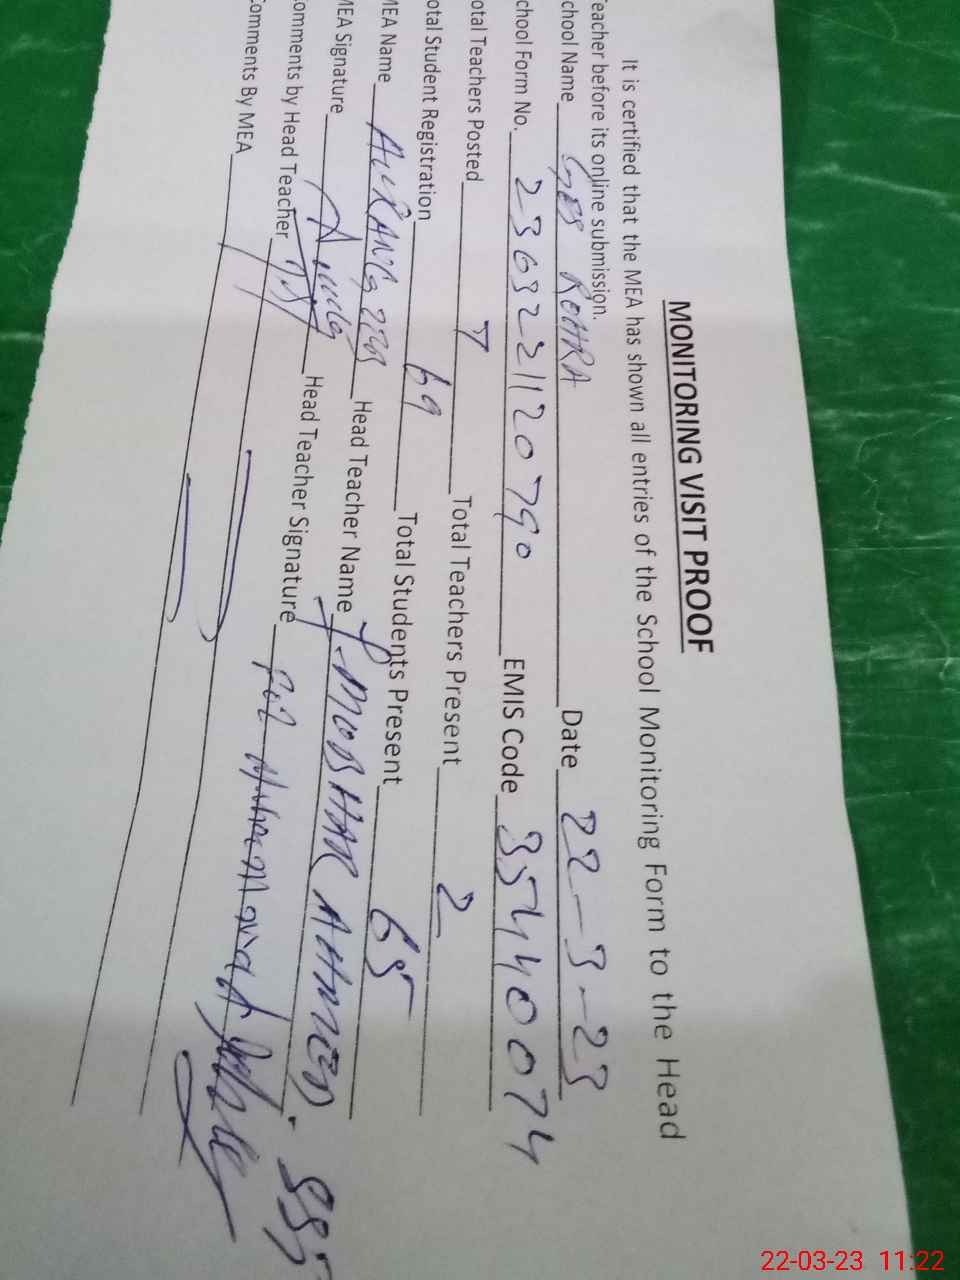 MONITORING VISIT PROOF
It is certified that the MEA has shown all entries of the School Monitoring Form to the Head
Teacher before its online submission.
chool Name GES ROHRA Date 22-3-23
chool Form No. 2363221120790 EMIS Code 35440074
otal Teachers Posted 7 Total Teachers Present 2
otal Student Registration 69 Total Students Present 65
MEA Name AURANGZEB Head Teacher Name MOBSHAR AHMED. SST
MEA Signature Head Teacher Signature
omments by Head Teacher Muhammad
omments By MEA
22-03-23 11:22